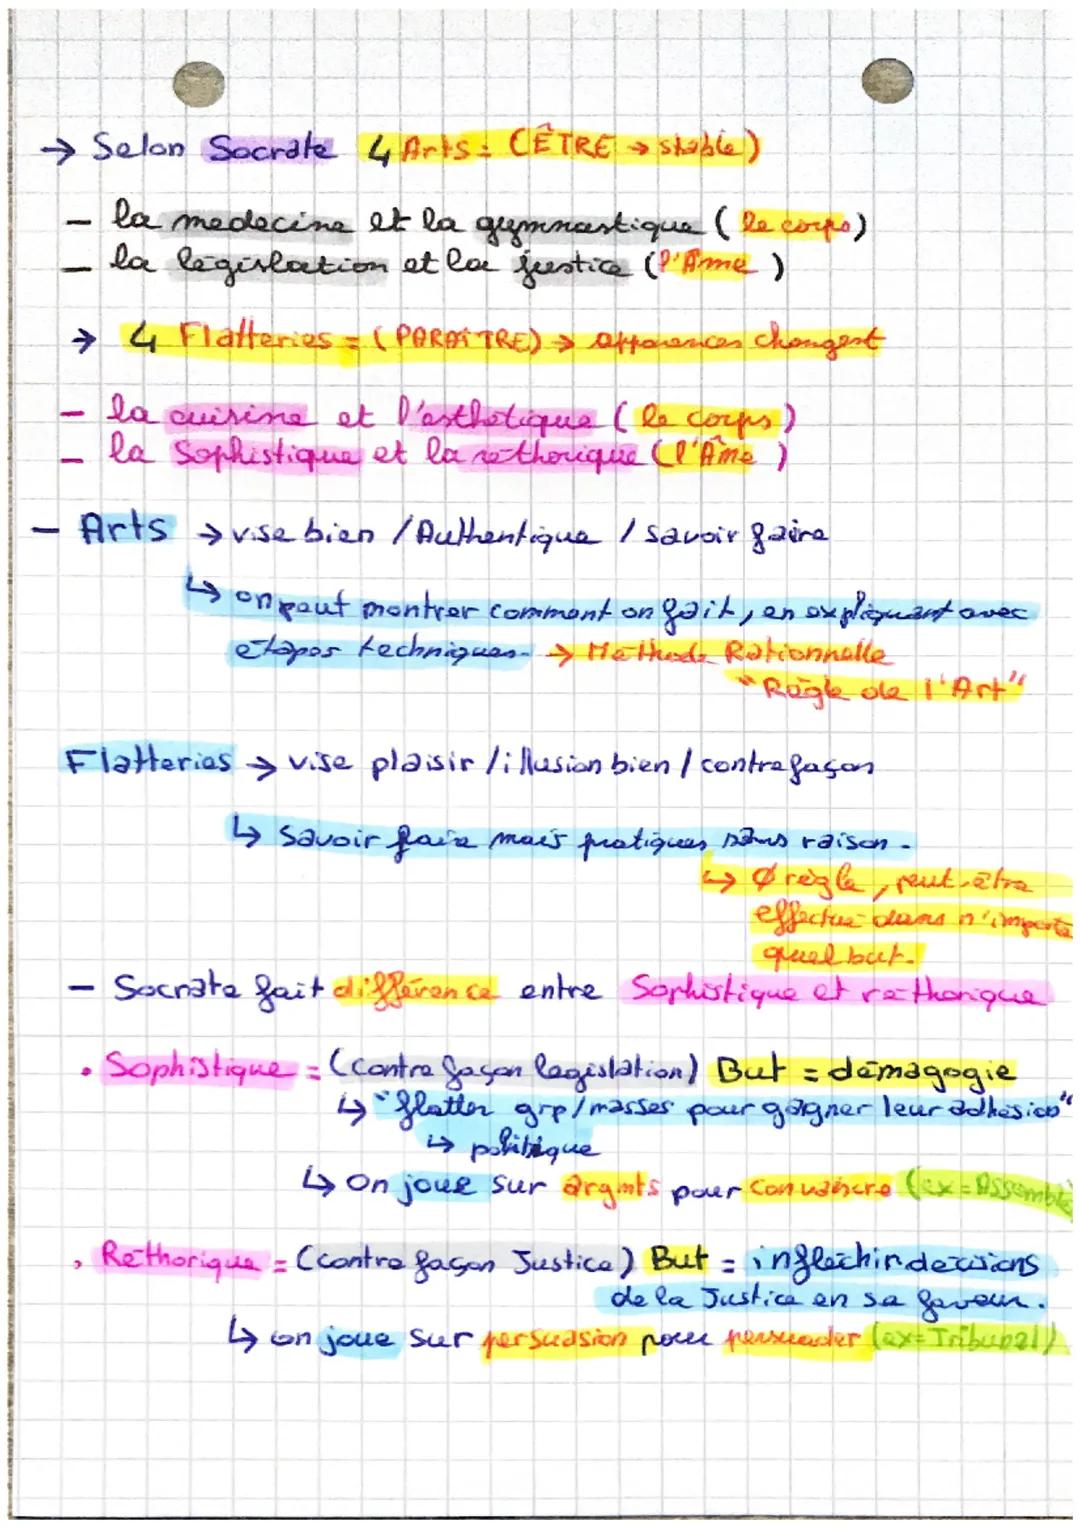 → Selon Socrate 4 Arts = (ÊTRE → stable)
- la medecine et la gymnastique (le corps)
- la législation et la justice (l'Âme)
→ 4 Flatteries = (PARAÎTRE) → apparences changent
- la cuisine et l'esthétique (le corps)
- la Sophistique et la réthorique (l'Âme)
- Arts → vise bien / Authentique / savoir faire
↳ on peut montrer comment on fait, en expliquant avec
étapes techniques. → Méthode Rationnelle
"Règle de l'Art"
Flatteries → vise plaisir / illusion bien / contrefaçon
↳ Savoir faire mais pratiques sans raison.
↳ Ø règle, peut être
effectué dans n'importe
quel but.
- Socrate fait différence entre Sophistique et réthorique
• Sophistique = (contrefaçon législation) But = démagogie
↳ "flatter grp/masses pour gagner leur adhésion"
↳ politique
↳ On joue sur argmts pour convaincre (ex = Assemblé
• Réthorique = (contrefaçon Justice) But = infléchir décisions
de la Justice en sa faveur.
↳ on joue sur persuasion pour persuader (ex = Tribunal)